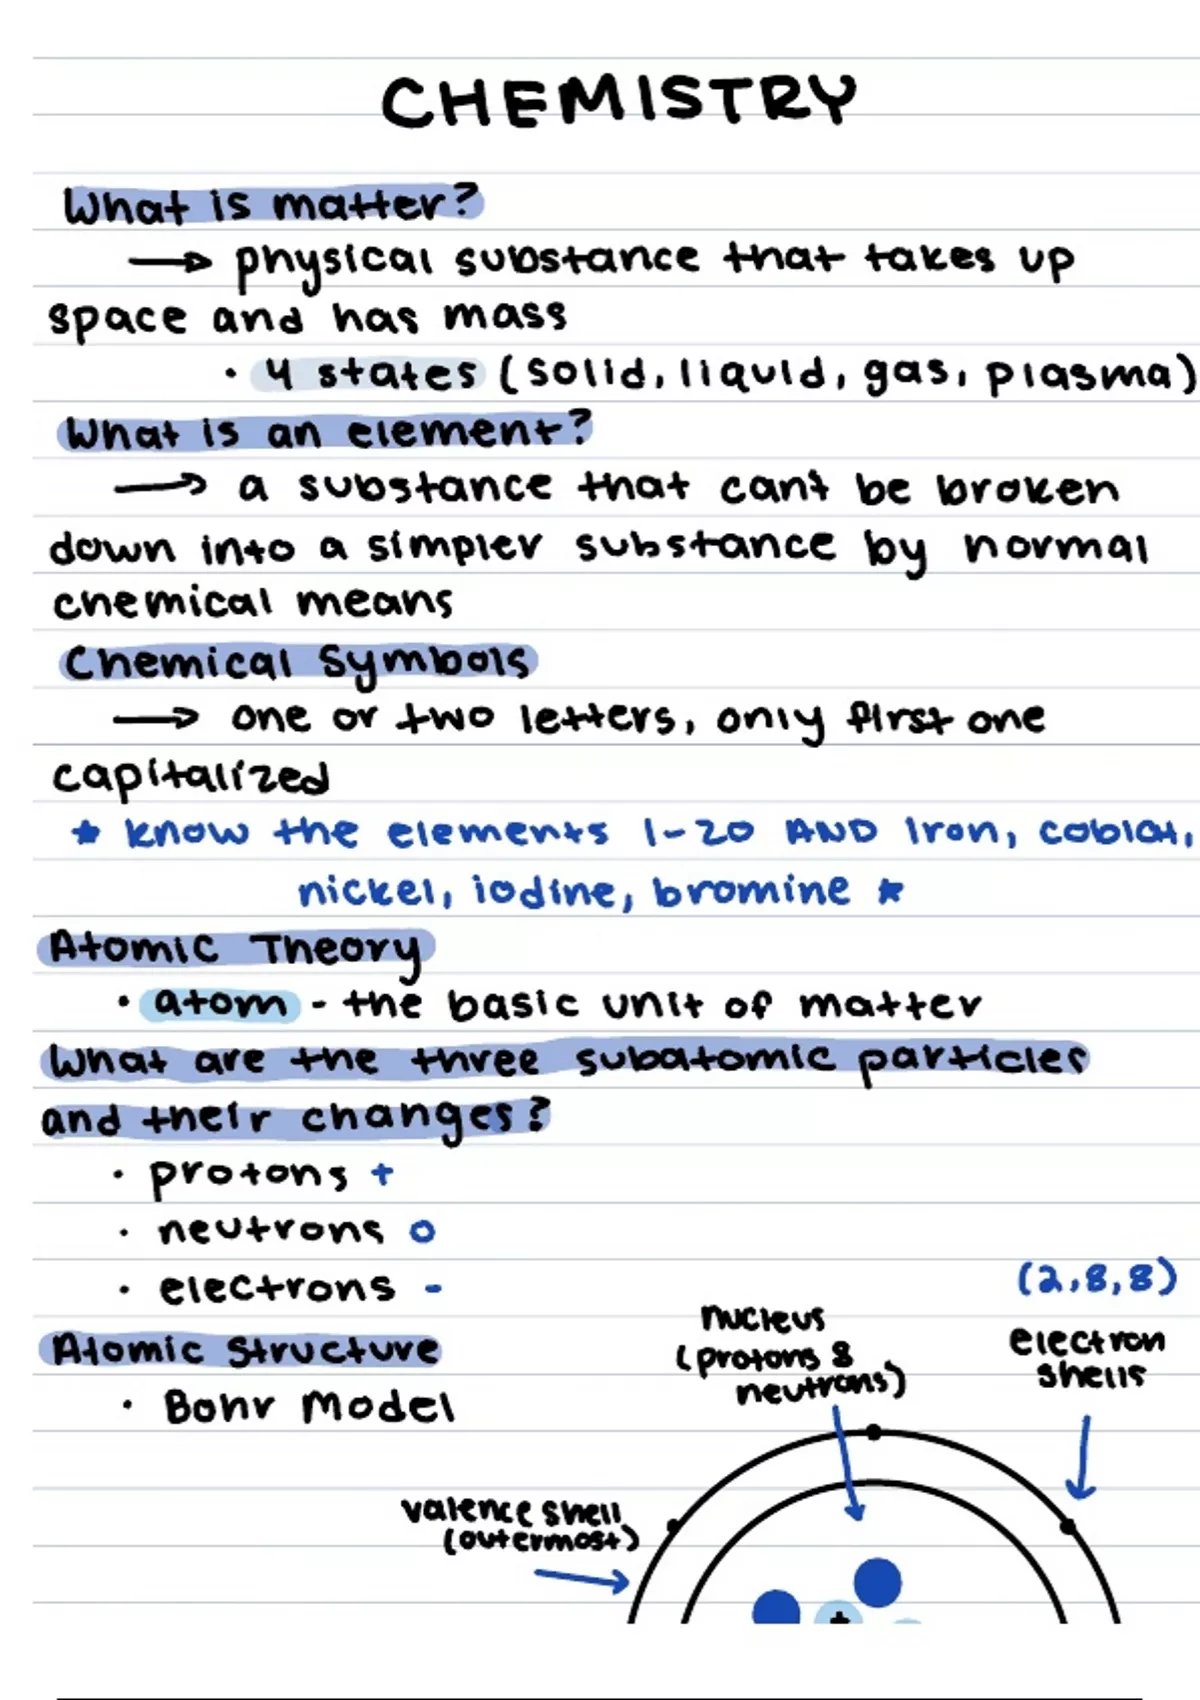 CHEMISTRY
What is matter?
→ physical substance that takes up
space and has mass
· 4 states (solid, liquid, gas, plasma)
What is an element?
→ a substance that can't be broken
down into a simpler substance by normal
chemical means
Chemical Symbols
→ one or two letters, only first one
capitalized
★ know the elements 1-20 AND Iron, coblat,
nickel, iodine, bromine ★
Atomic Theory
· atom - the basic unit of matter
What are the three subatomic particles
and their changes?
· protons +
· neutrons o
· electrons -
(2,8,8)
nucleus
(protons &
neutrons)
electron
shells
Atomic Structure
· Bohr Model
valence shell
(outermost)
+